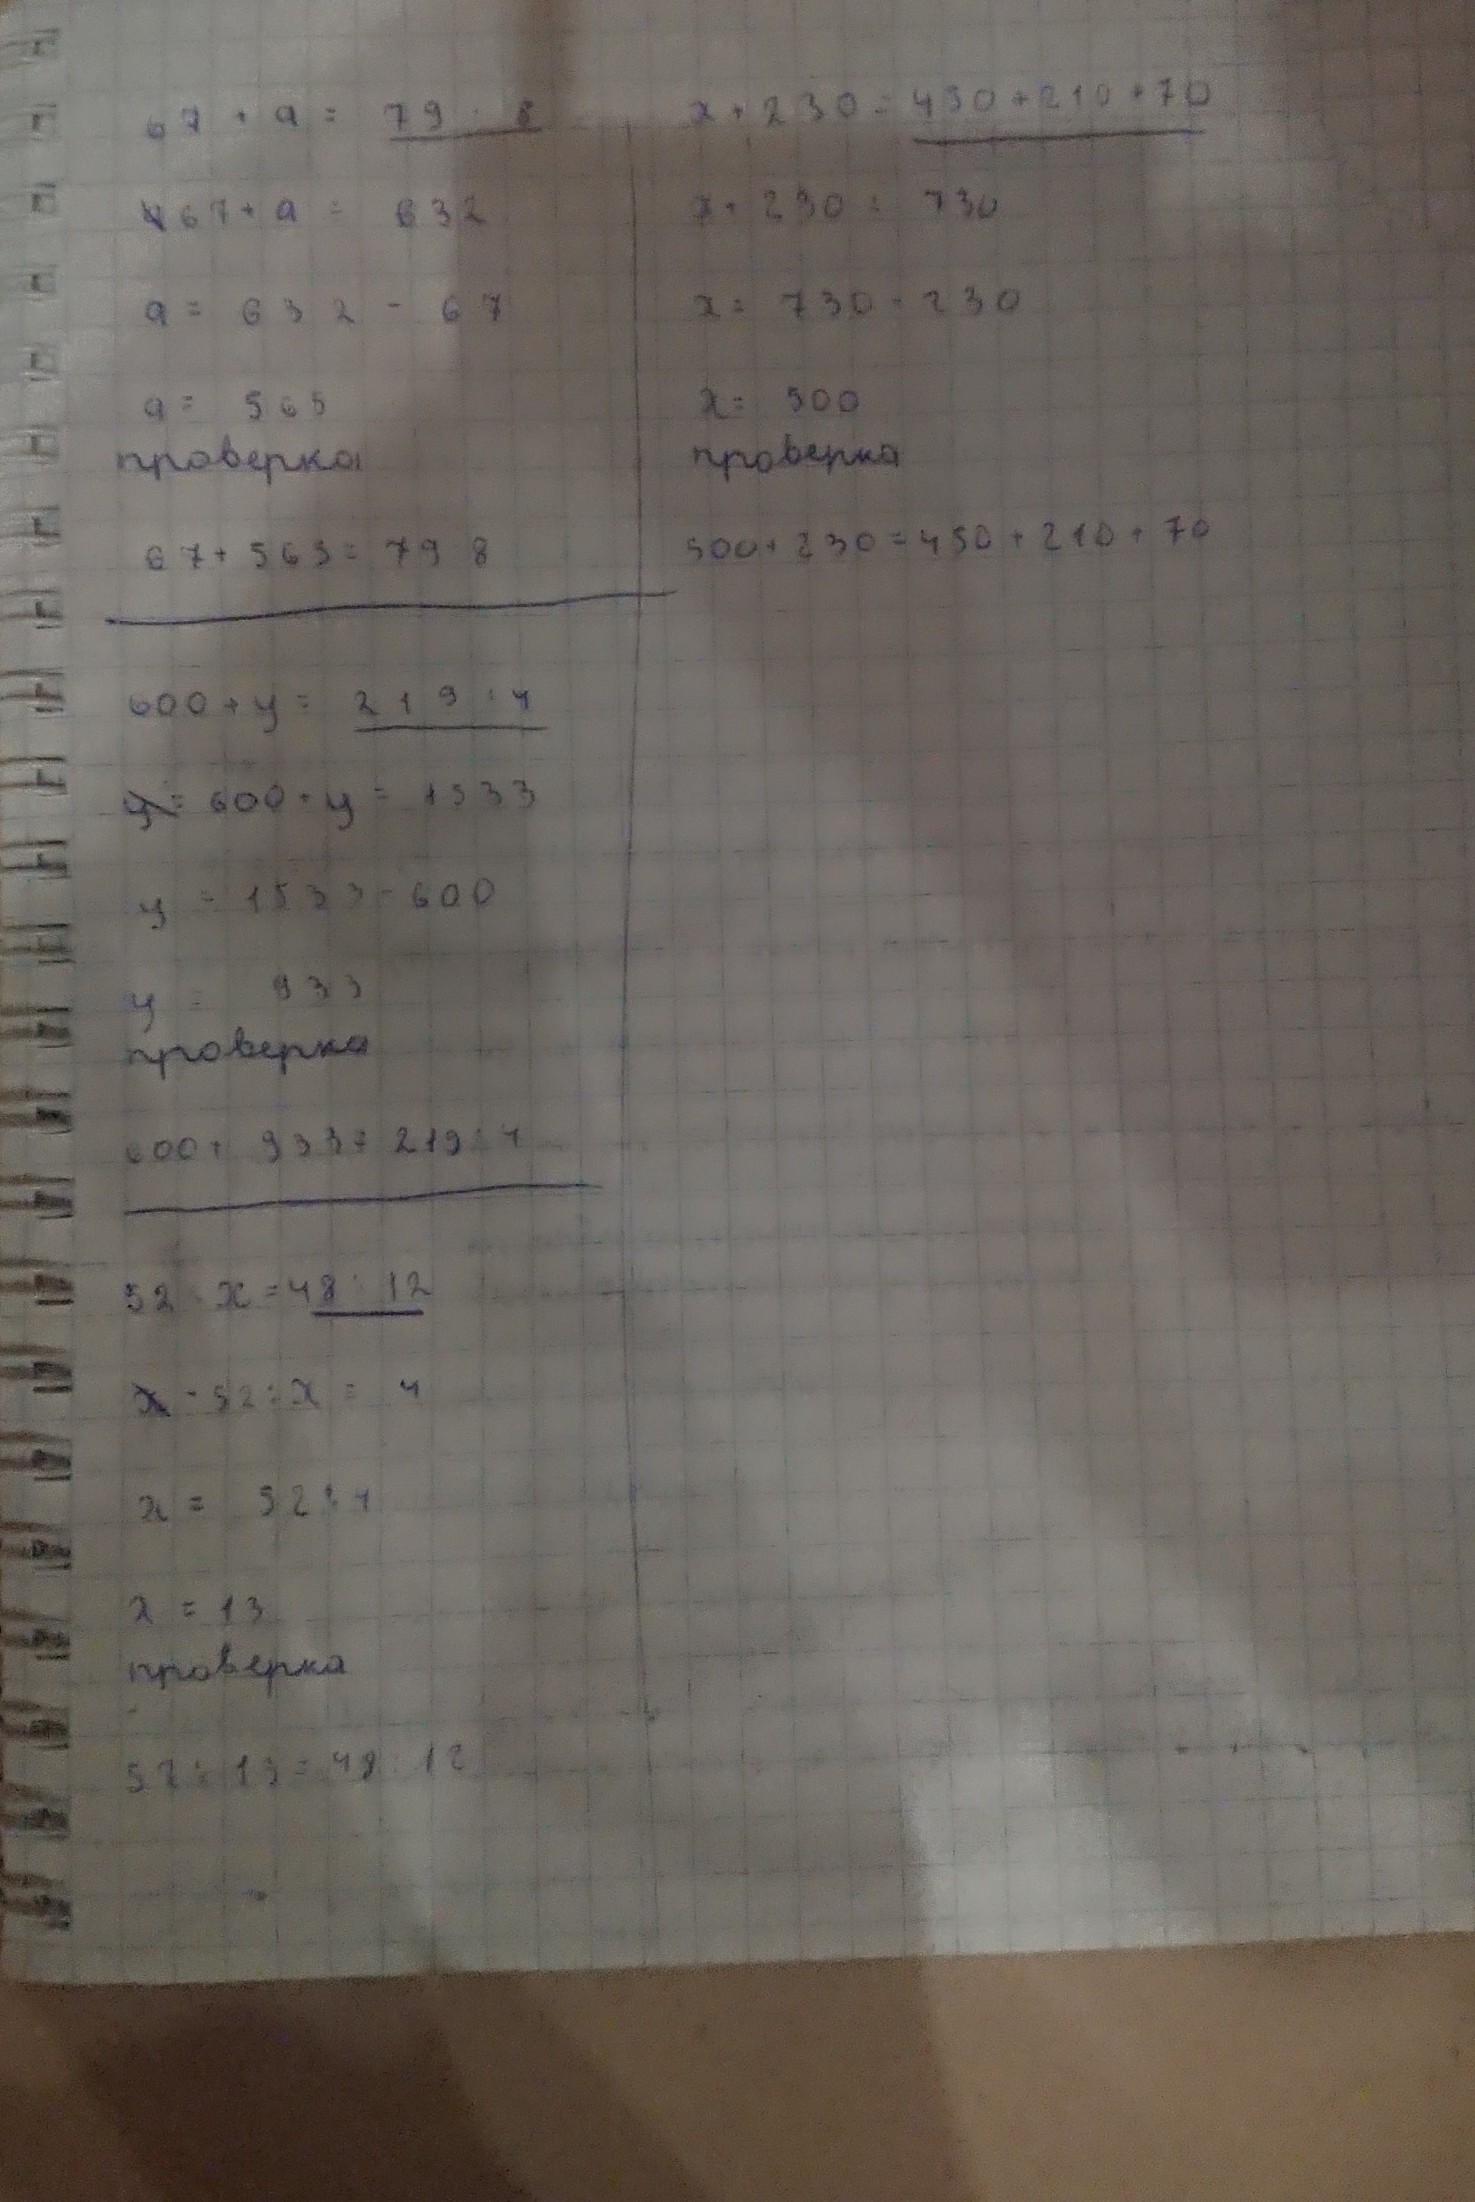 67 + a = 79 · 8
67 + a = 632
a = 632 - 67
a = 565
проверка
67 + 565 = 79 · 8
x + 230 = 450 + 210 + 70
x + 230 = 730
x = 730 - 230
x = 500
проверка
500 + 230 = 450 + 210 + 70
600 + y = 219 · 7
600 + y = 1533
y = 1533 - 600
y = 933
проверка
600 + 933 = 219 · 7
52 : x = 48 : 12
52 : x = 4
x = 52 : 4
x = 13
проверка
52 : 13 = 48 : 12